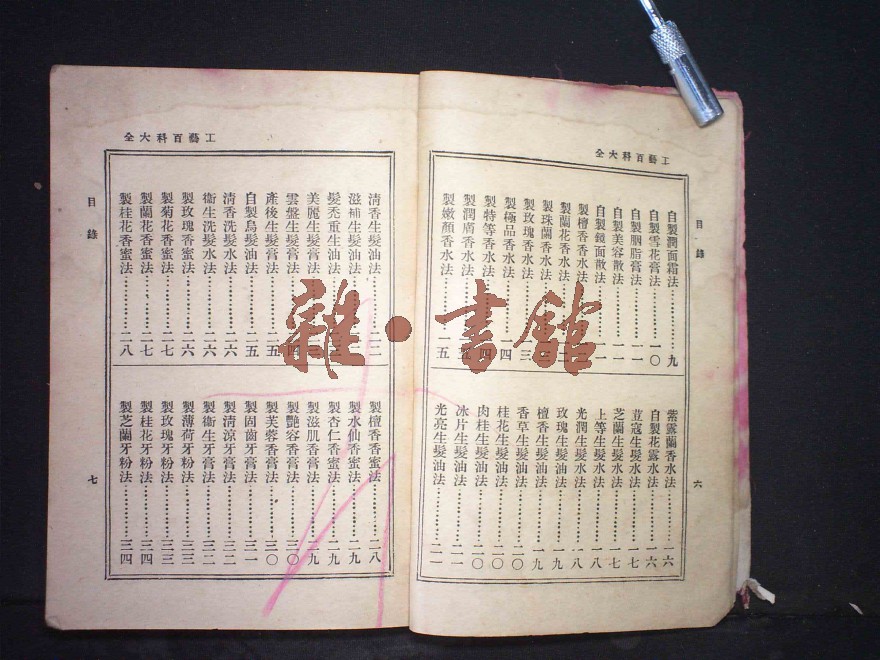 工藝百科大全
目錄
六
自製潤面霜法……九
自製雪花膏法……一〇
自製胭脂膏法……一一
自製美容散法……一一
自製鏡面散法……
製檀香香水法……
製蘭花香水法……
製珠蘭香水法……
製玫瑰香水法……
製極品香水法……四
製特等香水法……
製潤膚香水法……
製嫩顏香水法……一五
紫露蘭香水法……一六
自製花露水法……一六
荳冠生髮水法……一七
芝蘭生髮水法……一七
上等生髮水法……一八
光潤生髮水法……一八
玫瑰生髮油法……一九
檀香生髮油法……一九
香草生髮油法……二〇
桂花生髮油法……二〇
肉桂生髮油法……二〇
冰片生髮油法……二一
光亮生髮油法……二一
工藝百科大全
目錄
七
清香生髮油法……二二
滋補生髮油法……
髮禿重生油法……
美麗生髮膏法……
雲盤生髮膏法……
產後生髮膏法……二五
自製烏髮油法……二五
清香洗髮水法……二六
衛生洗髮水法……二六
製玫瑰香蜜法……二六
製菊花香蜜法……二七
製蘭花香蜜法……二七
製桂花香蜜法……二八
製檀香香蜜法……二八
製水仙香蜜法……二九
製杏仁香蜜法……二九
製滋肌香膏法……二九
製艷容香膏法……三〇
製芙蓉香膏法……三〇
製固齒牙膏法……三一
製清涼牙膏法……三二
製衛生牙膏法……三二
製薄荷牙粉法……三三
製玫瑰牙粉法……三三
製桂花牙粉法……三四
製芝蘭牙粉法……三四
雜·書館